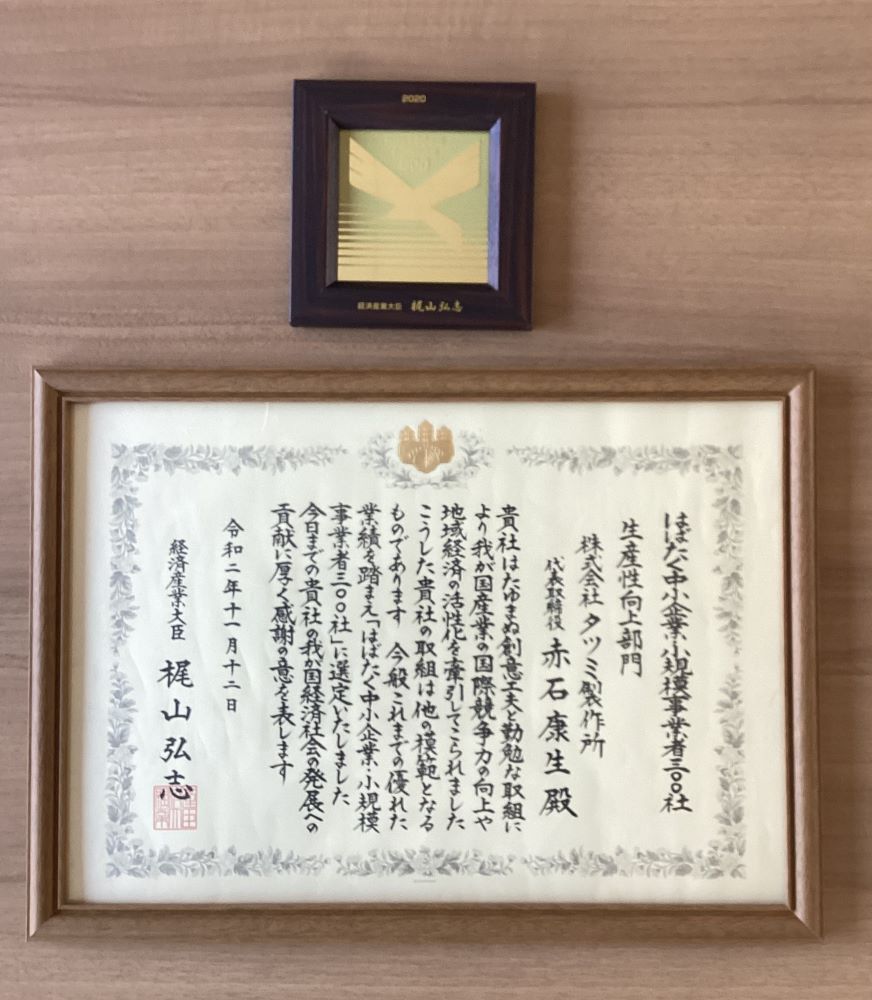 2020
経済産業大臣 梶山弘志
はばたく中小企業・小規模事業者三〇〇社
生産性向上部門
株式会社タツミ製作所
代表取締役 赤石康生殿
貴社はたゆまぬ創意工夫と勤勉な取組に
より我が国産業の国際競争力の向上や
地域経済の活性化を牽引してこられました
こうした貴社の取組は他の模範となる
ものであります 今般これまでの優れた
業績を踏まえ「はばたく中小企業・小規模
事業者三〇〇社」に選定いたしました
今日までの貴社の我が国経済社会の発展への
貢献に厚く感謝の意を表します
令和二年十一月十二日
経済産業大臣 梶山弘志